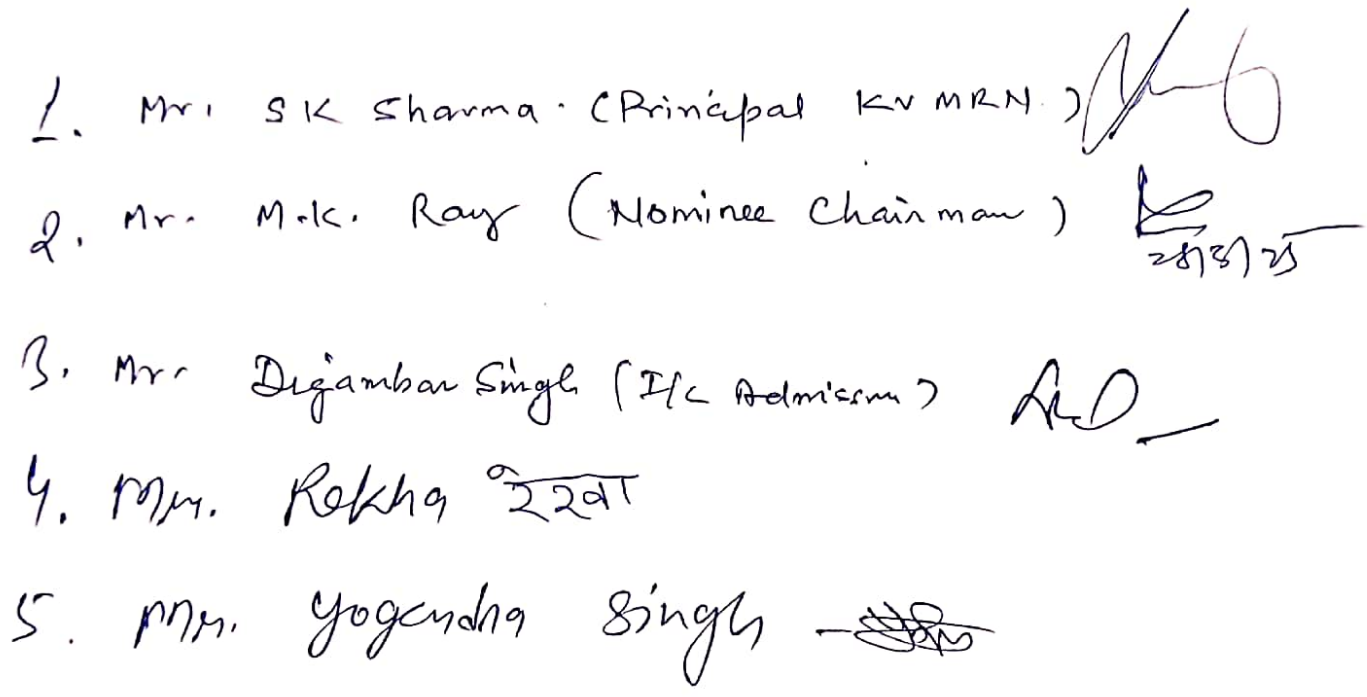 1. Mr. SK Sharma. (Principal KV MRN.)
2. Mr. M.K. Ray (Nominee Chairman)
28/3/25
3. Mr. Digambar Singh (I/c Admission)
4. Mrs. Rekha रेखा
5. Mr. Yogendra Singh